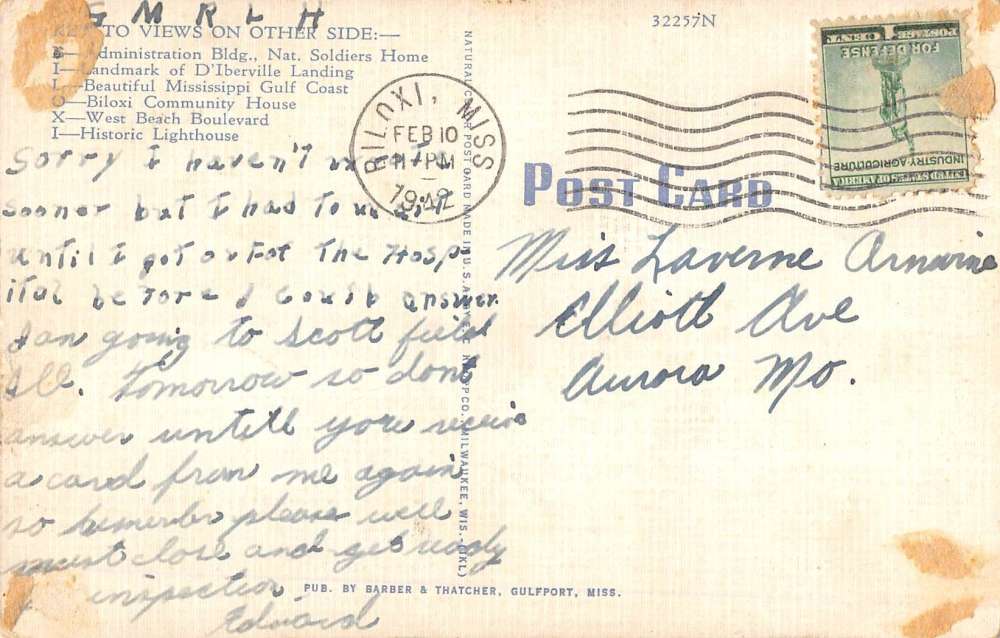 G M R L H
KEY TO VIEWS ON OTHER SIDE:—
B—Administration Bldg., Nat. Soldiers Home
I—Landmark of D'Iberville Landing
L—Beautiful Mississippi Gulf Coast
O—Biloxi Community House
X—West Beach Boulevard
I—Historic Lighthouse
Sorry I haven't
sooner but I had to
until I got out of the Hosp
ital before I could answer
I an going to Scott field
Ill. Tomorrow so dont
answer untill you receive
a card from me again
so remember please well
must close and get ready
inspection
Edward
NATURAL COLOR POST CARD MADE IN U.S.A. BY E. C. KROPP CO., MILWAUKEE, WIS. (DKL)
PUB. BY BARBER & THATCHER, GULFPORT, MISS.
32257N
BILOXI, MISS
FEB 10
PM
1942
1 CENT
POSTAGE
FOR DEFENSE
INDUSTRY-AGRICULTURE
UNITED STATES OF AMERICA
POST CARD
Miss Laverne
Elliott Ave
Aurora Mo.